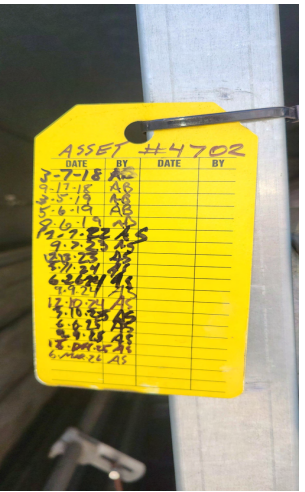 ASSET #4702
DATE BY DATE BY
3-7-18 AB
9-17-18 AB
3-5-19 AB
5-6-19 AB
9-6-19
AS
AS
12-13-23 AS
AS
AS
9-9-24
12-10-24 AS
3-10-25 AS
6-6-25 AS
9-9-25 AS
18-DEC-25 AS
6-MAR-26 AS